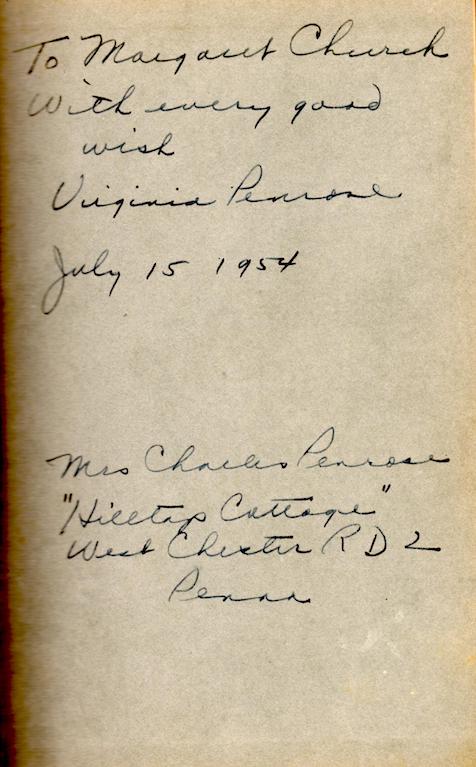 To Margaret Church
With every good
wish
Virginia Penrose
July 15 1954
Mrs Charles Penrose
"Hilltop Cottage"
West Chester R D 2
Penna